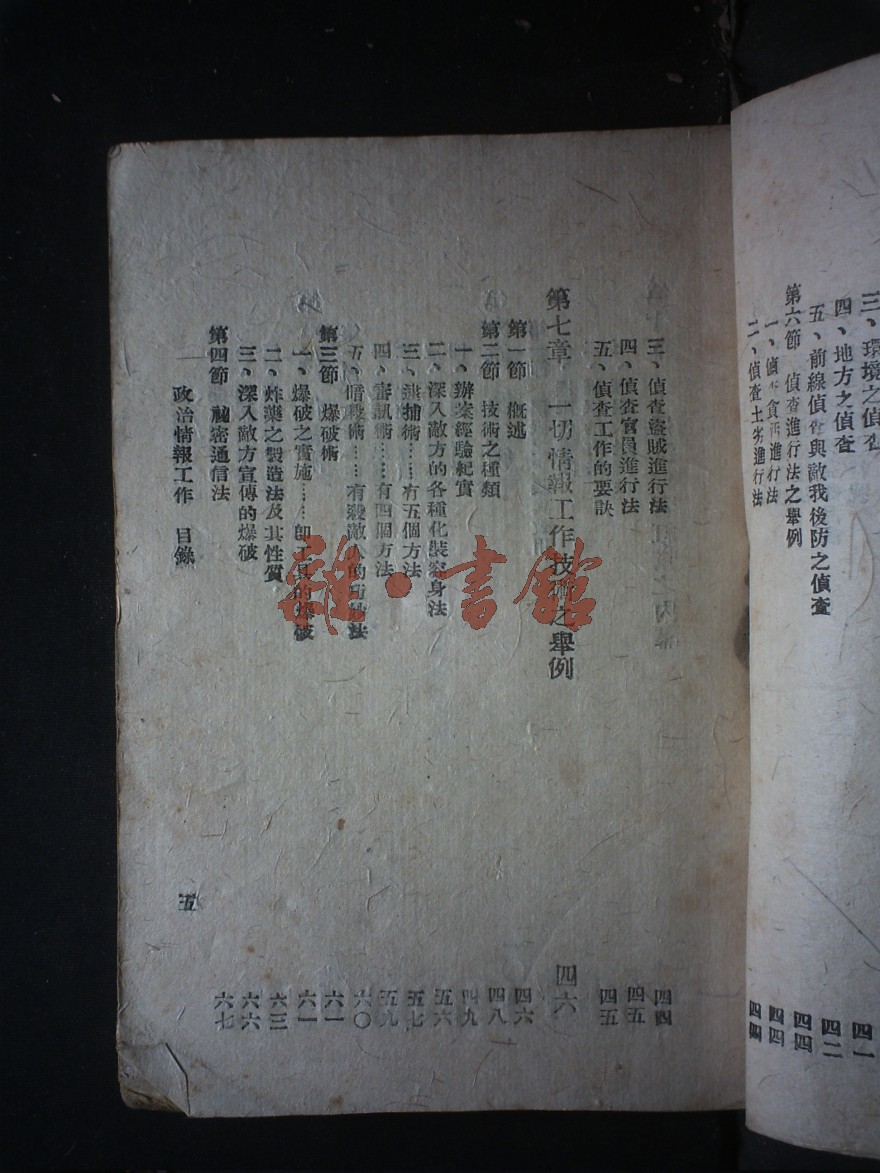 三、環境之偵查 四一
四、地方之偵查 四二
五、前線偵查與敵我後防之偵查 四四
第六節 偵查進行法之舉例 四四
一、偵查貪污進行法 四四
二、偵查土劣進行法
三、偵查盜賊進行法 四四
四、偵查官員進行法 四五
五、偵查工作的要訣 四五
第七章 一切情報工作技術之舉例 四六
第一節 概述 四六
第二節 技術之種類 四八
一、辦案經驗紀實 四九
二、深入敵方的各種化裝容身法 五六
三、逮捕術……有五個方法 五七
四、審訊術……有四個方法 五九
五、暗殺術……有殺敵人的巧妙法 六〇
第三節 爆破術 六一
一、爆破之實施……卽工具的爆破 六一
二、炸藥之製造法及其性質 六三
三、深入敵方宣傳的爆破 六六
第四節 祕密通信法 六七
政治情報工作 目錄
五
雜·書館